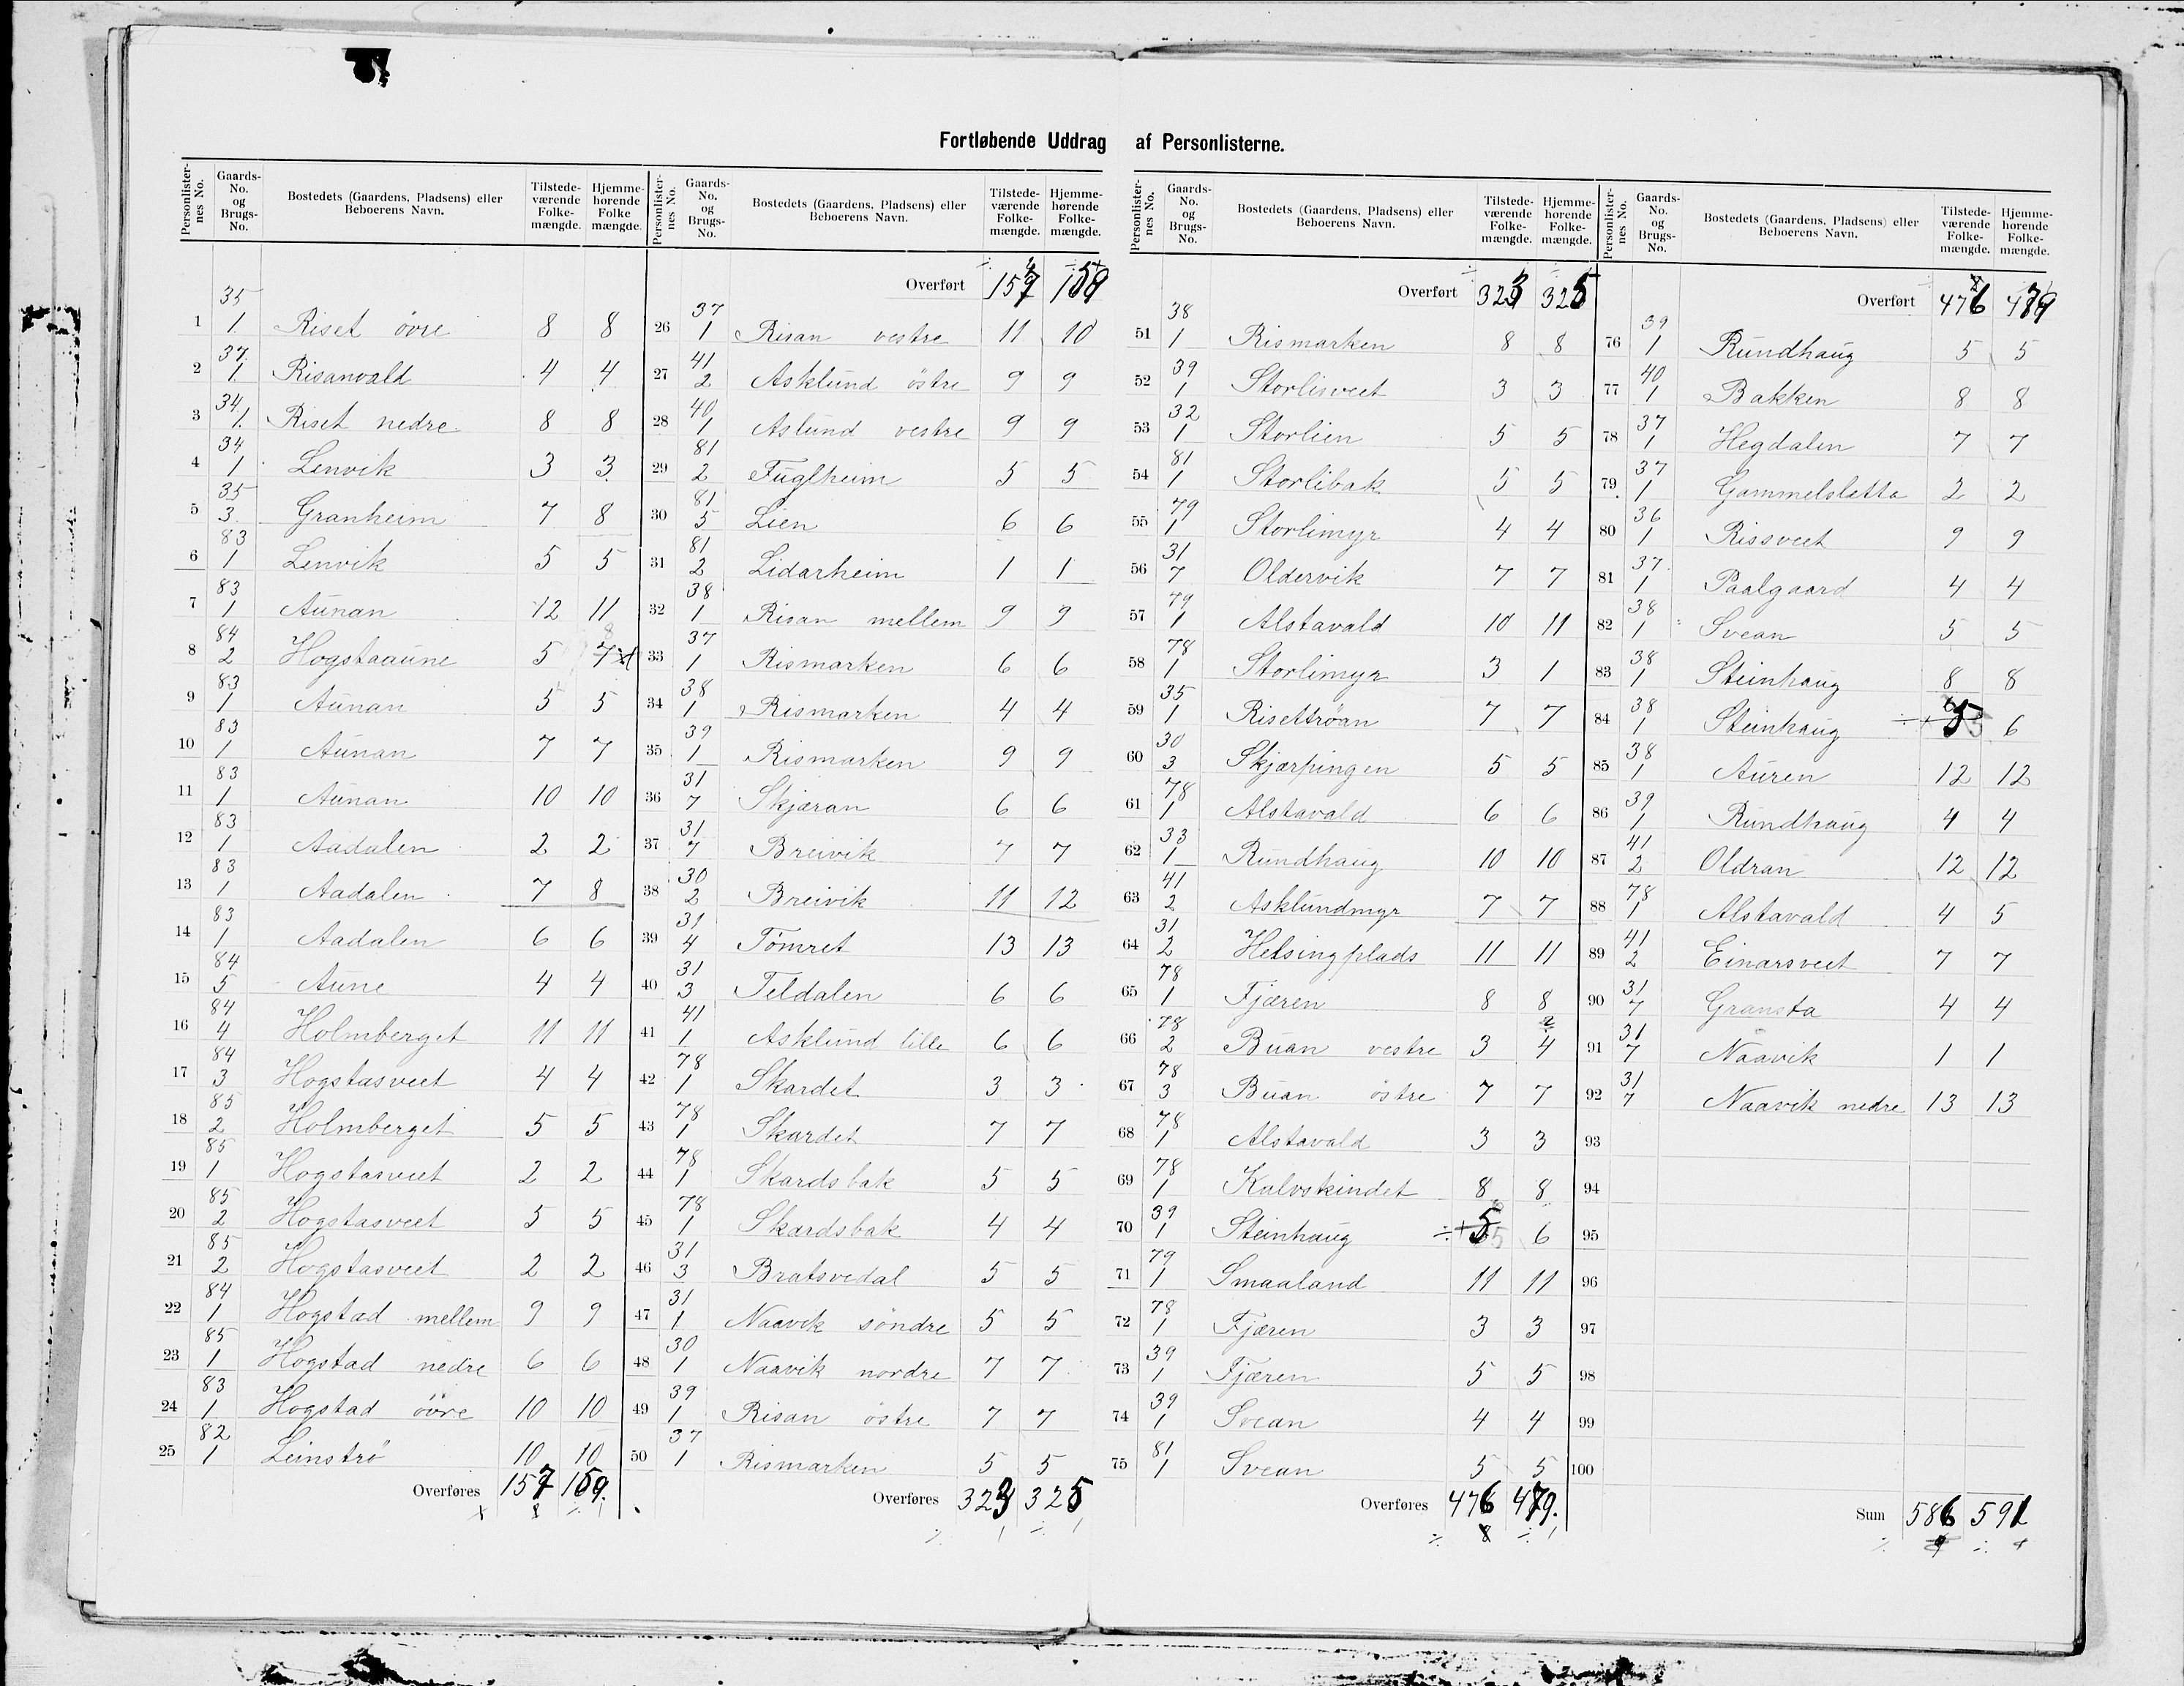 Fortløbende Uddrag af Personlisterne.
Personlister-nes No. Gaards-No. og Brugs-No. Bostedets (Gaardens, Pladsens) eller Beboerens Navn. Tilstede-værende Folke-mængde. Hjemme-hørende Folke mængde.
35
1 1 Riset övre 8 8
37
2 1 Risanvald 4 4
34
3 1 Riset nedre 8 8
34
4 1 Lenvik 3 3
35
5 3 Granheim 7 8
83
6 1 Lenvik 5 5
83
7 1 Aunan 12 11
84
8 2 Hogstaaune 5 7
83
9 1 Aunan 5 5
83
10 1 Aunan 7 7
83
11 1 Aunan 10 10
83
12 1 Aadalen 2 2
83
13 1 Aadalen 7 8
83
14 1 Aadalen 6 6
84
15 5 Aune 4 4
84
16 4 Holmberget 11 11
84
17 3 Hogstasveet 4 4
85
18 2 Holmberget 5 5
85
19 1 Hogstasveet 2 2
85
20 2 Hogstasveet 5 5
85
21 2 Hogstasveet 2 2
84
22 1 Hogstad mellem 9 9
85
23 1 Hogstad nedre 6 6
83
24 1 Hogstad övre 10 10
82
25 1 Leinströ 10 10
Overføres 157 159.
Personlister-nes No. Gaards-No. og Brugs-No. Bostedets (Gaardens, Pladsens) eller Beboerens Navn. Tilstede-værende Folke-mængde. Hjemme-hørende Folke-mængde.
Overført 157 159
37
26 1 Risan vestre 11 10
41
27 2 Asklund östre 9 9
40
28 1 Aslund vestre 9 9
81
29 2 Fuglheim 5 5
81
30 5 Lien 6 6
81
31 2 Lidarheim 1 1
38
32 1 Risan mellem 9 9
37
33 1 Rismarken 6 6
38
34 1 Rismarken 4 4
39
35 1 Rismarken 9 9
31
36 7 Skjæran 6 6
31
37 7 Breivik 7 7
30
38 2 Breivik 11 12
31
39 4 Tömret 13 13
31
40 3 Teldalen 6 6
41
41 1 Asklund lille 6 6
78
42 1 Skardet 3 3
78
43 1 Skardet 7 7
78
44 1 Skardsbak 5 5
78
45 1 Skardsbak 4 4
31
46 3 Bratsvedal 5 5
31
47 1 Naavik söndre 5 5
30
48 1 Naavik nordre 7 7
39
49 1 Risan östre 7 7
37
50 1 Rismarken 5 5
Overføres 323 325
Personlister-nes No. Gaards-No. og Brugs-No. Bostedets (Gaardens, Pladsens) eller Beboerens Navn. Tilstede-værende Folke-mængde. Hjemme-hørende Folke-mængde.
Overført 323 325
38
51 1 Rismarken 8 8
39
52 1 Storlisveet 3 3
32
53 1 Storlien 5 5
81
54 1 Storlibak 5 5
79
55 1 Storlimyr 4 4
31
56 7 Oldervik 7 7
79
57 1 Alstavald 10 11
78
58 1 Storlimyr 3 1
35
59 1 Risettröan 7 7
30
60 3 Skjærpingen 5 5
78
61 1 Alstavald 6 6
33
62 1 Rundhaug 10 10
41
63 2 Asklundmyr 7 7
31
64 2 Helsingplads 11 11
78
65 1 Fjæren 8 8
78
66 2 Buan vestre 3 4
78
67 3 Buan östre 7 7
78
68 1 Alstavald 3 3
78
69 1 Kalvskindet 8 8
39
70 1 Steinhaug 5 6
79
71 1 Smaaland 11 11
78
72 1 Fjæren 3 3
39
73 1 Fjæren 5 5
39
74 1 Svean 4 4
81
75 1 Svean 5 5
Overføres 476 479.
Personlister-nes No. Gaards-No. og Brugs-No. Bostedets (Gaardens, Pladsens) eller Beboerens Navn. Tilstede-værende Folke-mængde. Hjemme-hørende Folke-mængde.
Overført 476 479
39
76 1 Rundhaug 5 5
40
77 1 Bakken 8 8
37
78 1 Hegdalen 7 7
37
79 1 Gammelsletta 2 2
36
80 1 Rissveet 9 9
37
81 1 Paalgaard 4 4
38
82 1 Svean 5 5
38
83 1 Steinhaug 8 8
38
84 1 Steinhaug 5 6
38
85 1 Auren 12 12
39
86 1 Rundhaug 4 4
41
87 2 Oldran 12 12
78
88 1 Alstavald 4 5
41
89 2 Einarsveet 7 7
31
90 7 Gransta 4 4
31
91 7 Naavik 1 1
31
92 7 Naavik nedre 13 13
93
94
95
96
97
98
99
100
Sum 586 591